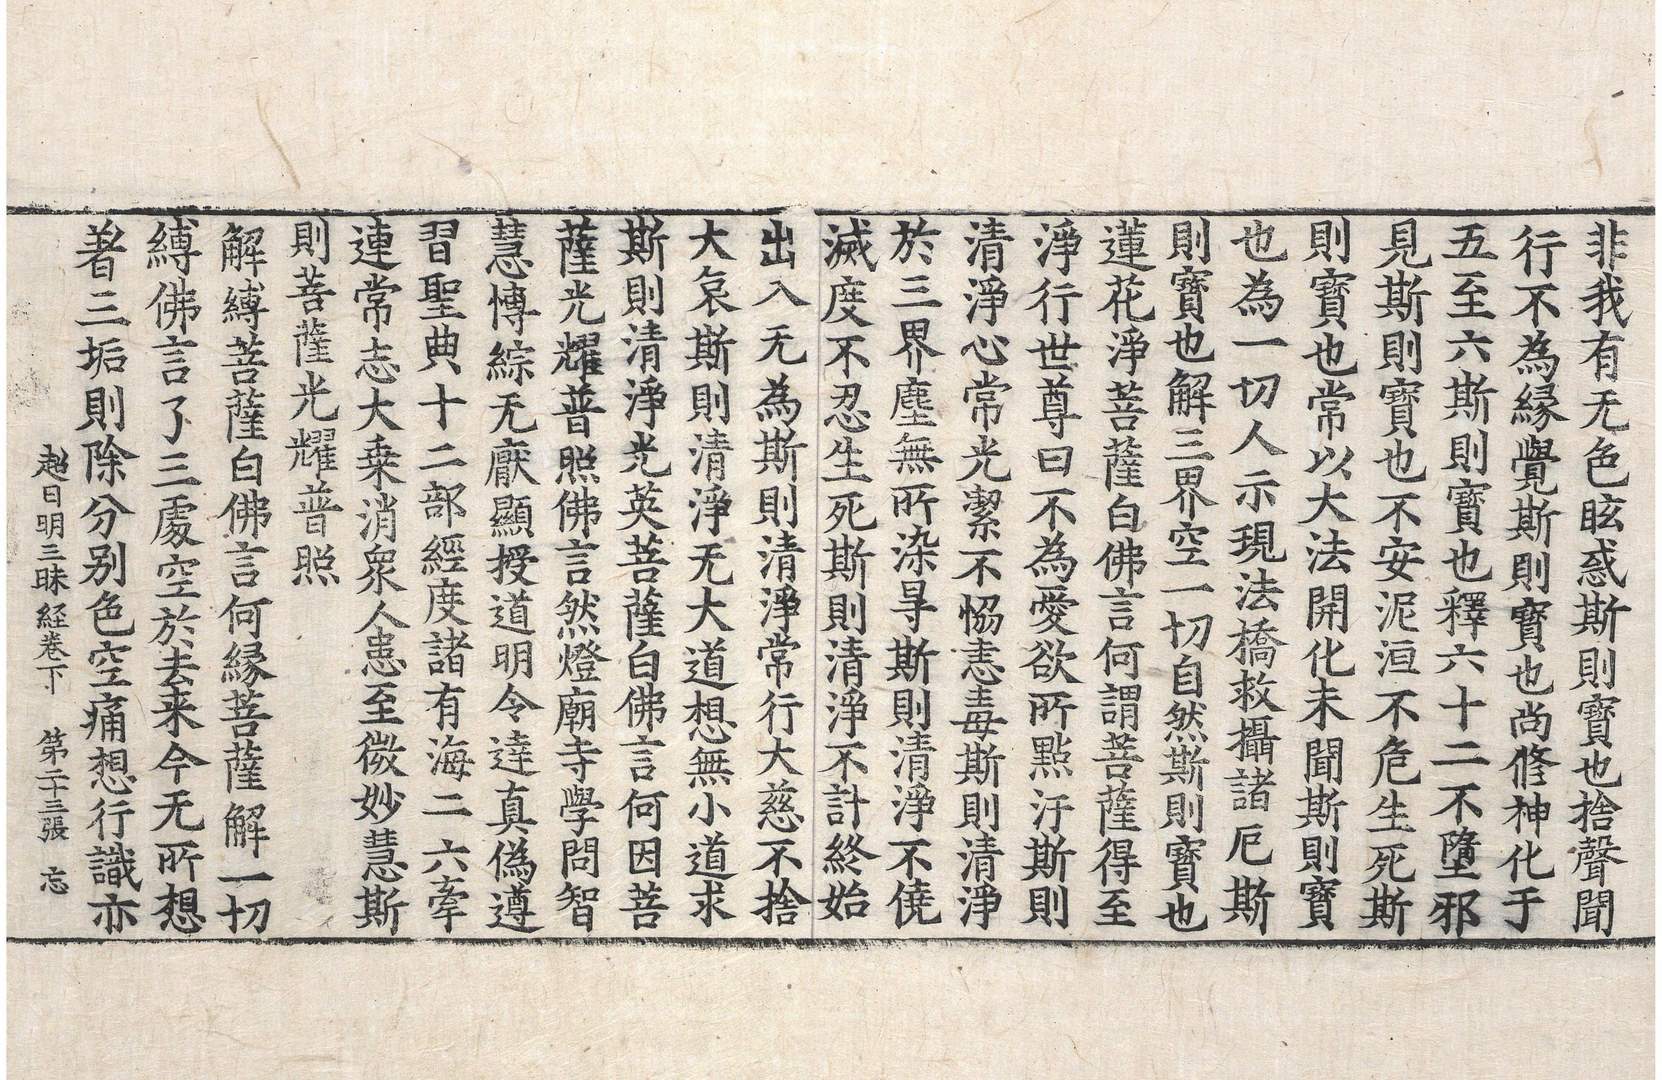 非我有无色眩惑斯則寶也捨聲聞
行不為緣覺斯則寶也尚脩神化于
五至六斯則寶也釋六十二不墮邪
見斯則寶也不安泥洹不危生死斯
則寶也常以大法開化未聞斯則寶
也為一切人示現法橋救攝諸厄斯
則寶也解三界空一切自然斯則寶也
蓮花淨菩薩白佛言何謂菩薩得至
淨行世尊曰不為愛欲所點汙斯則
清淨心常光潔不懷恚毒斯則清淨
於三界塵無所染㝵斯則清淨不僥
滅度不忍生死斯則清淨不計終始
出入无為斯則清淨常行大慈不捨
大哀斯則清淨无大道想無小道求
斯則清淨光英菩薩白佛言何因菩
薩光耀普照佛言然燈廟寺學問智
慧博綜无厭顯授道明令達真偽遵
習聖典十二部經度諸有海二六牽
連常志大乘消衆人患至微妙慧斯
則菩薩光耀普照
解縛菩薩白佛言何緣菩薩解一切
縛佛言了三處空於去来今无所想
著三垢則除分别色空痛想行識亦
超日明三昧経卷下 第二十三張 忘